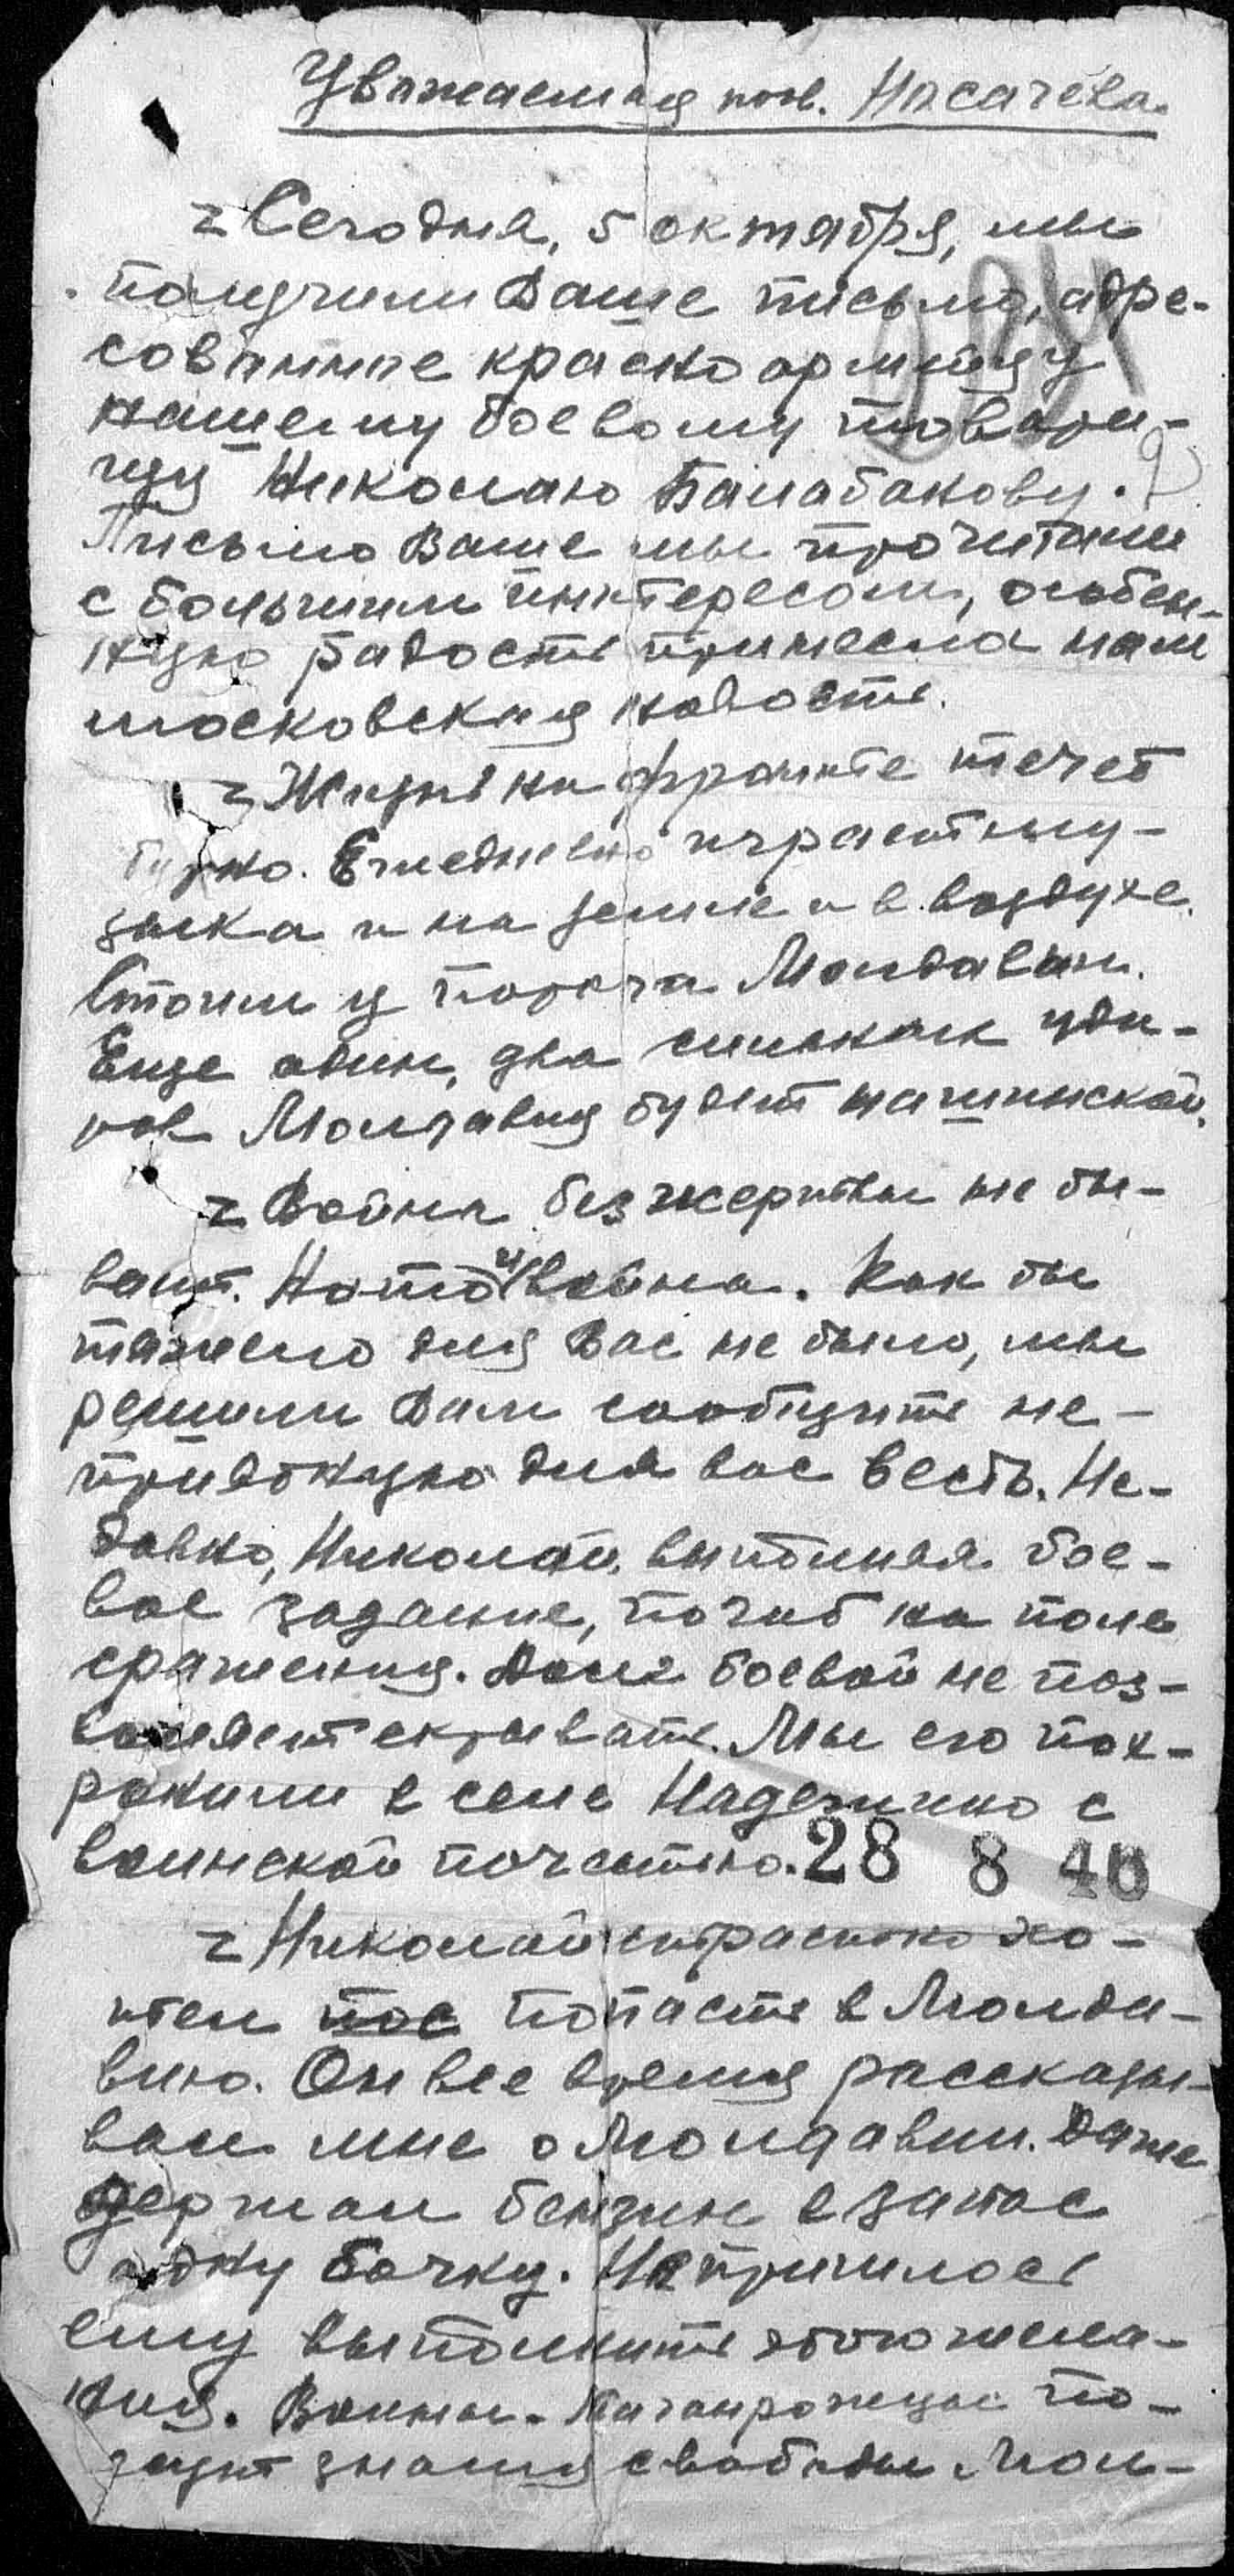 Уважаемая тов. Насачева.
Сегодня, 5 октября, мы
получили Ваше письмо, адре-
сованное красноармейцу
нашему боевому товари-
щу Николаю Балабанову.
Письмо Ваше мы прочитали
с большим интересом, особен-
ную радость принесла нам
московская новость.
Жизнь на фронте течет
бурно. Ежедневно играет му-
зыка и на земле и в воздухе.
Стоим у порога Молдавии.
Еще один, два сильных уда-
ров Молдавия будет
Война без жертвы не бы-
вает. На то и война. Как бы
тяжело для Вас не было, мы
решили Вам сообщить не-
приятную для вас весть. Не-
давно, Николай, выполняя бое-
вое задание, погиб на поле
сражения. Долг боевой не поз-
воляет скрывать. Мы его пох-
ронили в селе Надеждино с
воинской почестью.
28 8 40
Николай страстно хо-
тел пос попасть в Молда-
вию. Он все время рассказы-
вал мне о Молдавии. Даже
держал бензин в запас
одну бочку. Не пришлось
ему выполнить этого жела-
ния. Воины-Таганрожцы по-
несут знамя свободы Мол-